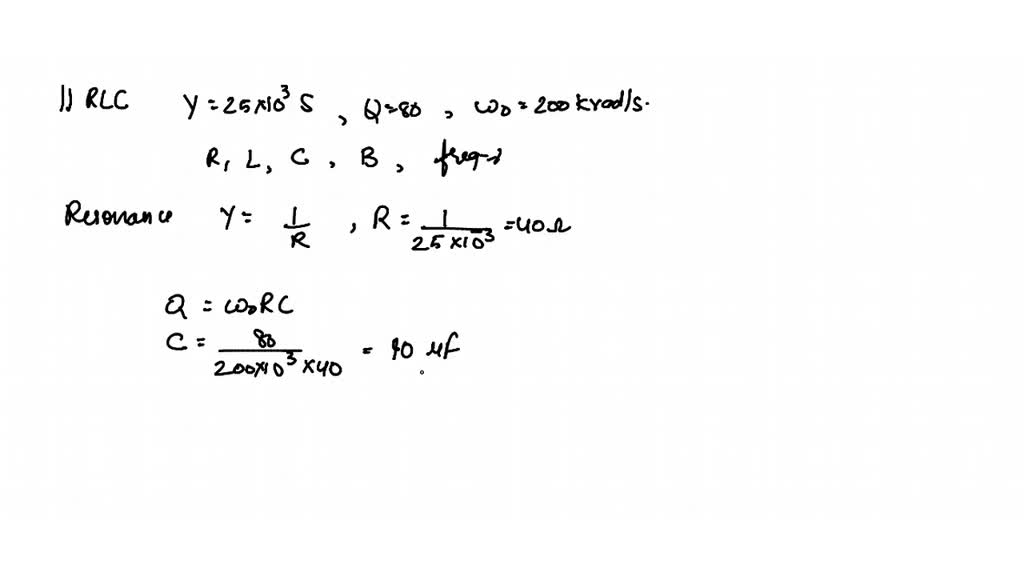 || RLC Y = 25×10³ S , Q=80 , ω₀ = 200 krad/s.
R, L, C , B , freq→
Resonance Y = 1/R , R = 1/(25×10⁻³) = 40Ω
Q = ω₀RC
C = 80/(200×10³ × 40) = 10 μf